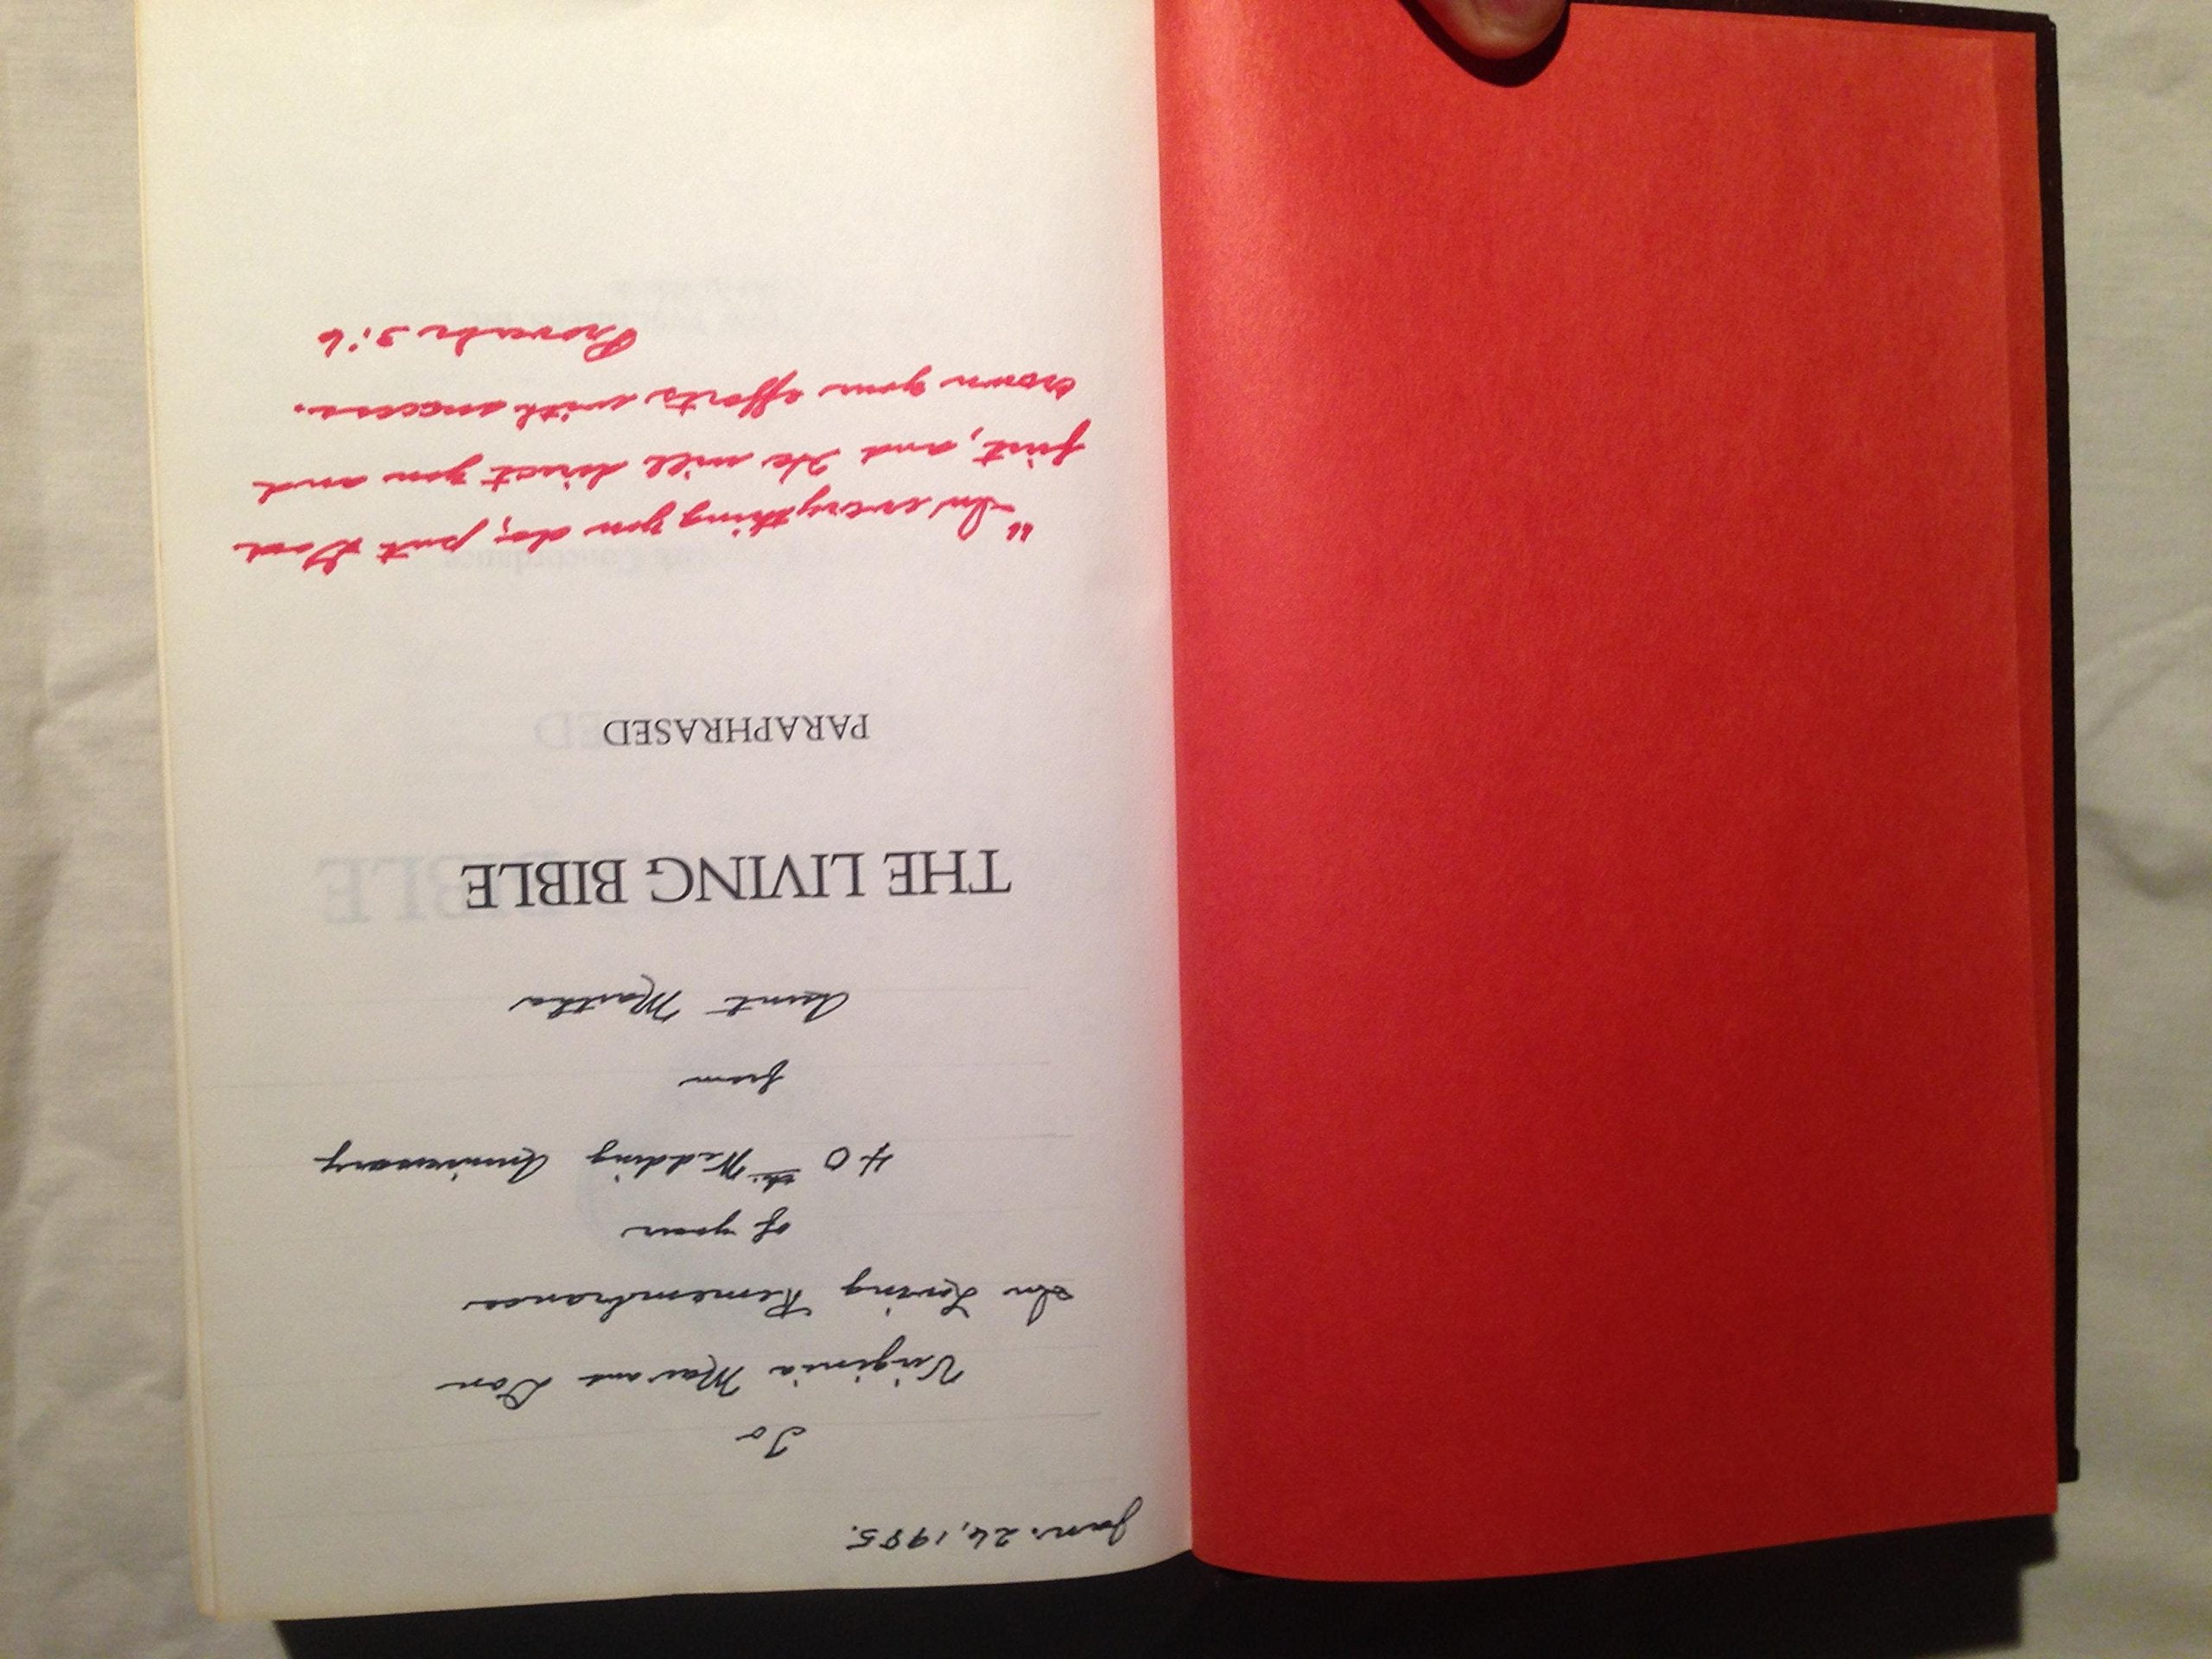 Jan. 26, 1985.
To
Virginia Mae and Don
In Loving Remembrance
of your
40th Wedding Anniversary
from
Aunt Martha
THE LIVING BIBLE
PARAPHRASED
"In everything you do, put God
first, and He will direct you and
crown your efforts with success.
Proverbs 3:6